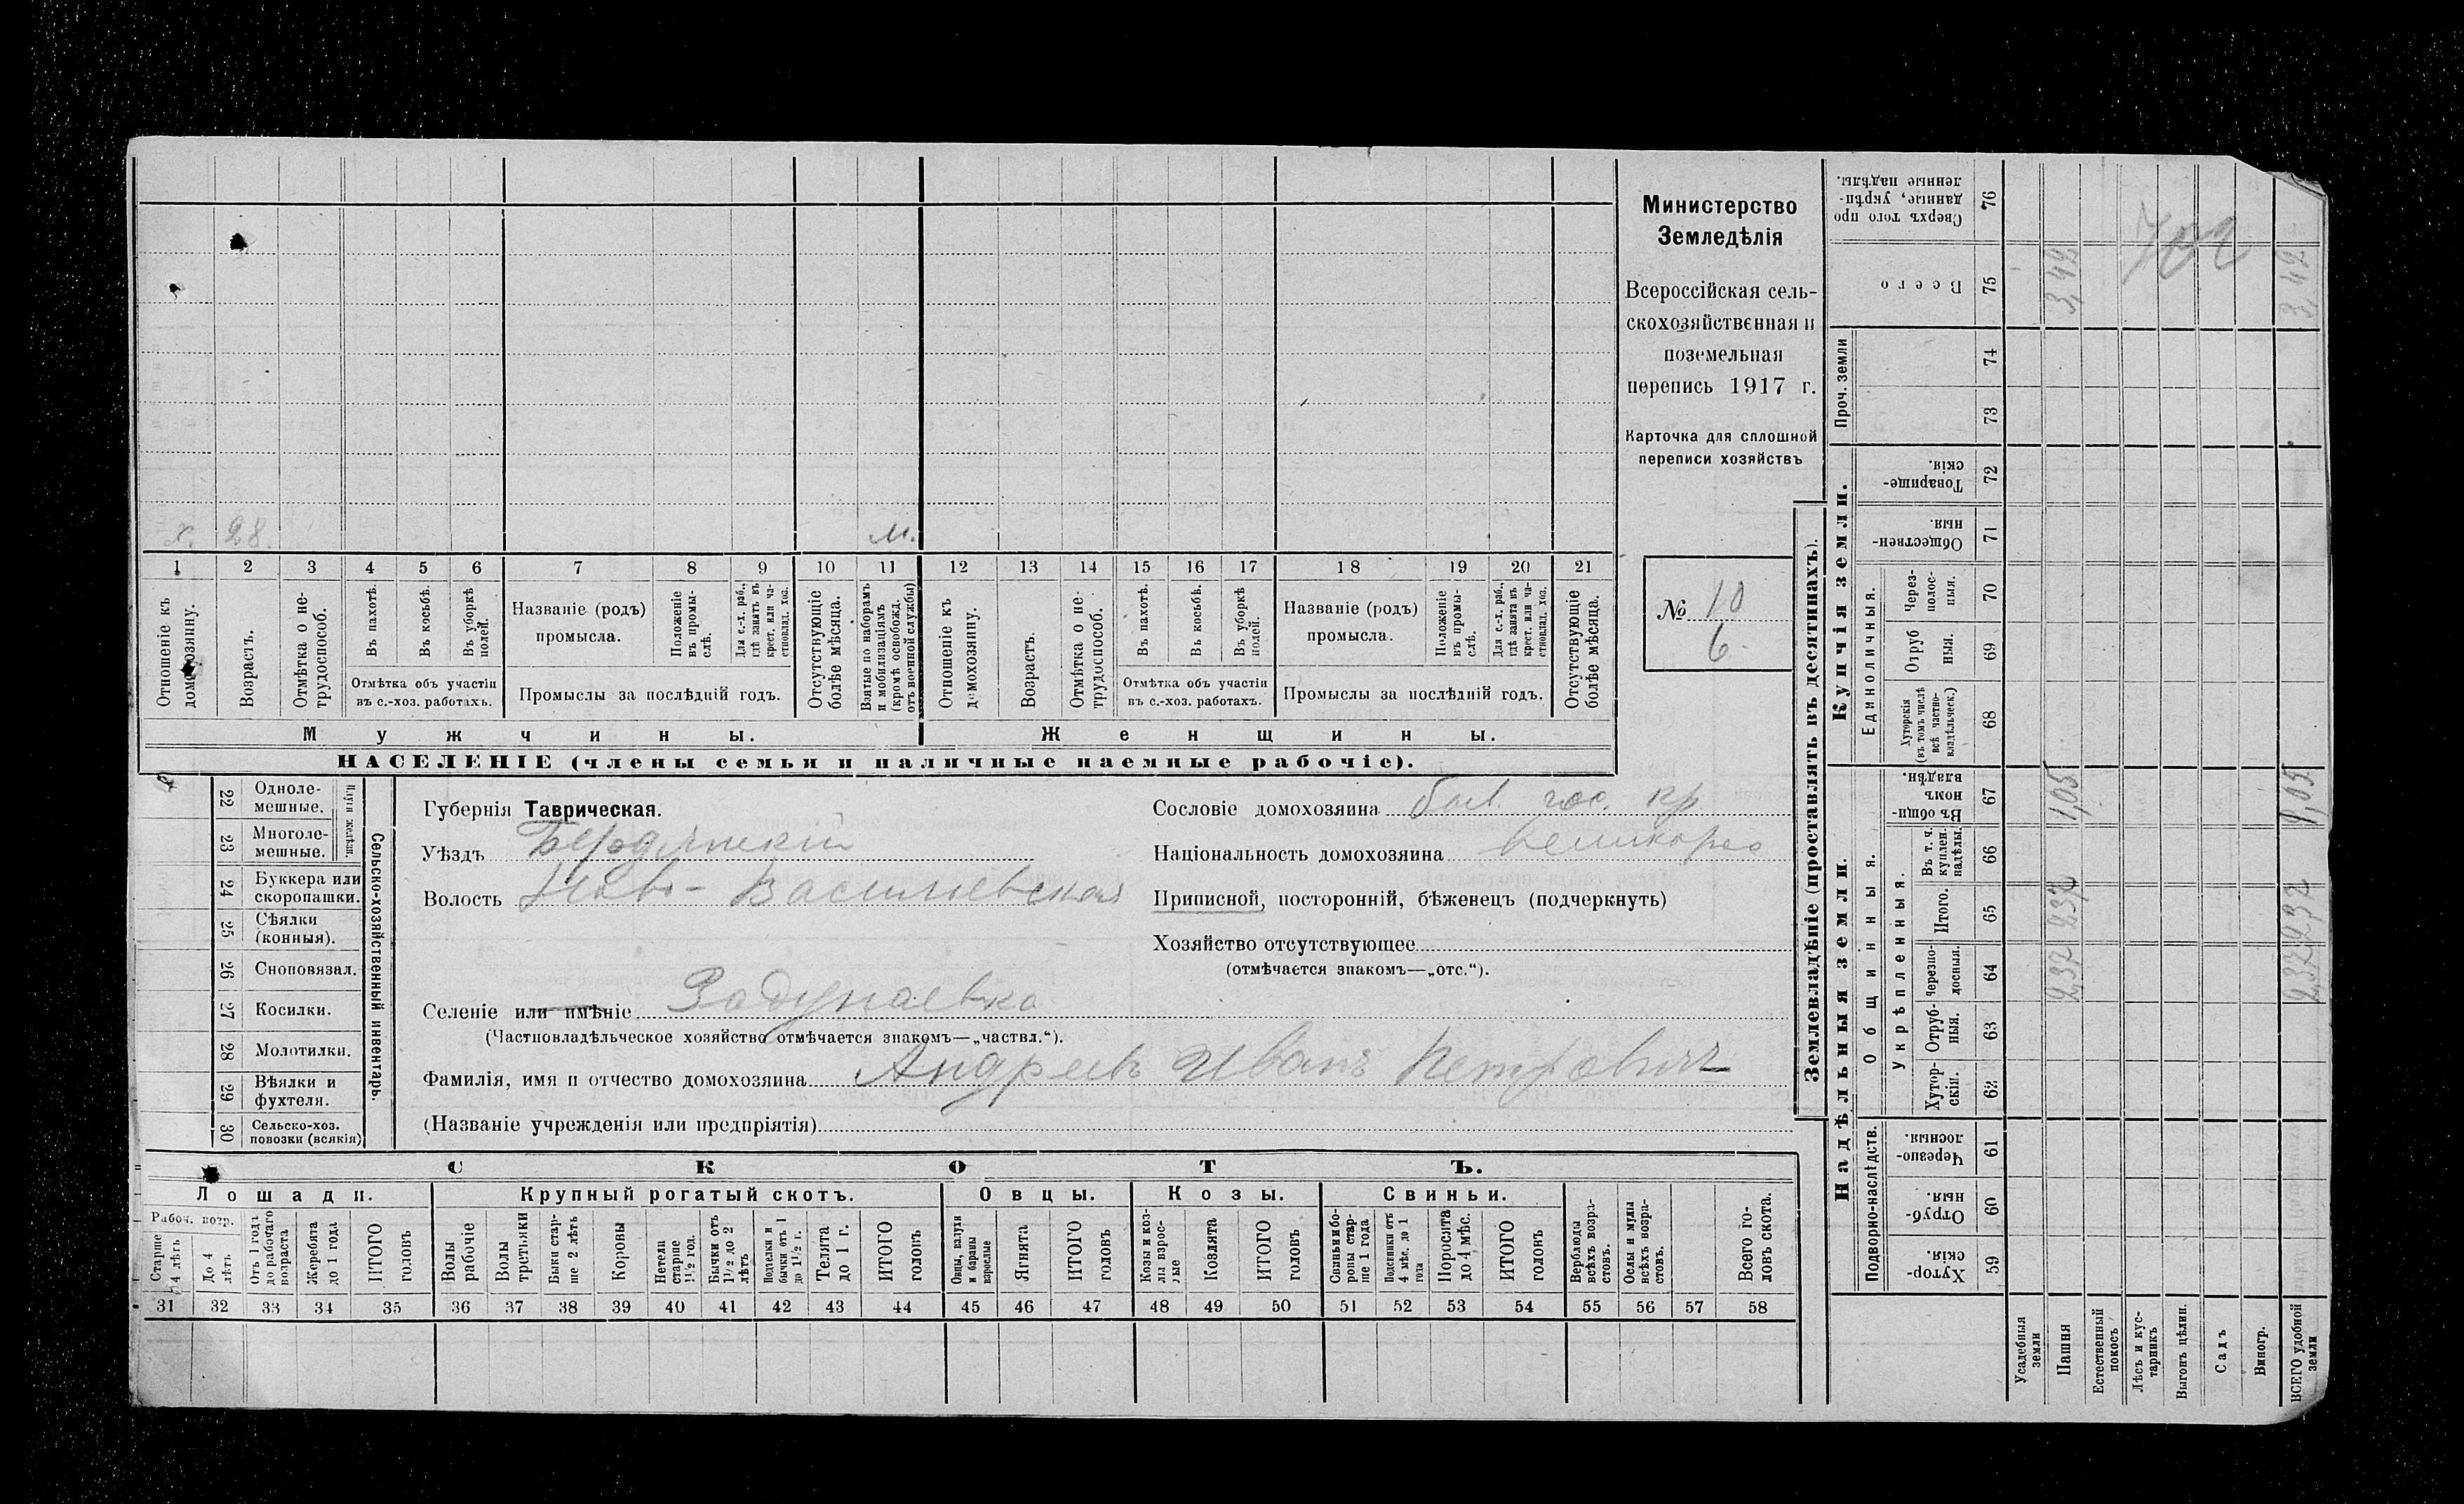 х. 28. м.
1 2 3 4 5 6 7 8 9 10 11 12 13 14 15 16 17 18 19 20 21
Отношеніе къ домохозяину.
Возрастъ.
Отмѣтка о нетрудоспособ.
Въ пахотѣ.
Въ косьбѣ.
Въ уборкѣ полей.
Отмѣтка объ участіи въ с.-хоз. работахъ.
Названіе (родъ) промысла.
Положеніе въ промыслѣ.
Для с.-х. раб., гдѣ занятъ въ крест. или частновлад. хоз.
Промыслы за послѣдній годъ.
Отсутствующіе болѣе мѣсяца.
Взятые по наборамъ и мобилизаціямъ (кромѣ освобожд. отъ военной службы)
Отношеніе къ домохозяину.
Возрастъ.
Отмѣтка о нетрудоспособ.
Въ пахотѣ.
Въ косьбѣ.
Въ уборкѣ полей.
Отмѣтка объ участіи въ с.-хоз. работахъ.
Названіе (родъ) промысла.
Положеніе въ промыслѣ.
Для с.-х. раб., гдѣ занята въ крест. или частновлад. хоз.
Промыслы за послѣдній годъ.
Отсутствующіе болѣе мѣсяца.
Мужчины. Женщины.
НАСЕЛЕНІЕ (члены семьи и наличные наемные рабочіе).
Министерство
Земледѣлія
Всероссійская сель-
скохозяйственная и
поземельная
перепись 1917 г.
Карточка для сплошной
переписи хозяйствъ
№ 10
6
22 Однолемешные.
23 Многолемешные.
Плуги желѣзн.
24 Буккера или скоропашки.
25 Сѣялки (конныя).
26 Сноповязал.
27 Косилки.
28 Молотилки.
29 Вѣялки и фухтеля.
30 Сельско-хоз. повозки (всякія)
Сельско-хозяйственный инвентарь.
Губернія Таврическая.
Уѣздъ Бердянскій
Волость Ново-Васильевская
Селеніе или имѣніе Задунаевка
(Частновладѣльческое хозяйство отмѣчается знакомъ—„частвл.“).
Фамилія, имя и отчество домохозяина Андреевъ Иванъ Петровичъ
(Названіе учрежденія или предпріятія)
Сословіе домохозяина быв. гос. кр
Національность домохозяина великорос
Приписной, посторонній, бѣженецъ (подчеркнуть)
Хозяйство отсутствующее
(отмѣчается знакомъ—„отс.“).
СКОТЪ.
Лошади. Крупный рогатый скотъ. Овцы. Козы. Свиньи.
Рабоч. возр.
Старше 4 лѣтъ
До 4 лѣтъ
Отъ 1 года до рабочаго возраста
Жеребята до 1 года
ИТОГО головъ
Волы рабочіе
Волы третьяки
Быки старше 2 лѣтъ
Коровы
Нетели старше 1½ год.
Бычки отъ 1½ до 2 лѣтъ
Подтелки и бычки отъ 1 до 1½ г.
Телята до 1 г.
ИТОГО головъ
Овцы, валухи и бараны взрослые
Ягнята
ИТОГО головъ
Козы и козлы взрослые
Козлята
ИТОГО головъ
Свиньи и боровы старше 1 года
Подсвинки отъ 4 мѣс. до 1 года
Поросята до 4 мѣс.
ИТОГО головъ
Верблюды всѣхъ возрастовъ.
Ослы и мулы всѣхъ возрастовъ.
Всего головъ скота.
31 32 33 34 35 36 37 38 39 40 41 42 43 44 45 46 47 48 49 50 51 52 53 54 55 56 57 58
Землевладѣніе (проставлять въ десятинахъ).
Купчія земли.
Надѣльныя земли.
Сверхъ того проданные, укрѣпленные надѣлы. 76
Всего 75 3,42 3,42
702
Проч. земли 74 73
Товарищескія. 72
Общественныя. 71
Единоличныя.
Черезполосныя. 70
Отрубныя. 69
Хуторскія (въ томъ числѣ всѣ частновладѣльческ.) 68
Въ общинномъ владѣн. 67 1,05 1,05
Общинныя.
Укрѣпленныя.
Въ т. ч. куплен. надѣлы. 66
Итого. 65 2,37 2,37
Черезполосныя. 64 2,37 2,37
Отрубныя. 63
Хуторскія. 62
Подворно-наслѣдств.
Черезполосныя. 61
Отрубныя. 60
Хуторскія. 59
Усадебныя земли
Пашня
Естественный покосъ
Лѣсъ и кустарникъ
Выгонъ цѣлин.
Садъ
Виногр.
ВСЕГО удобной земли